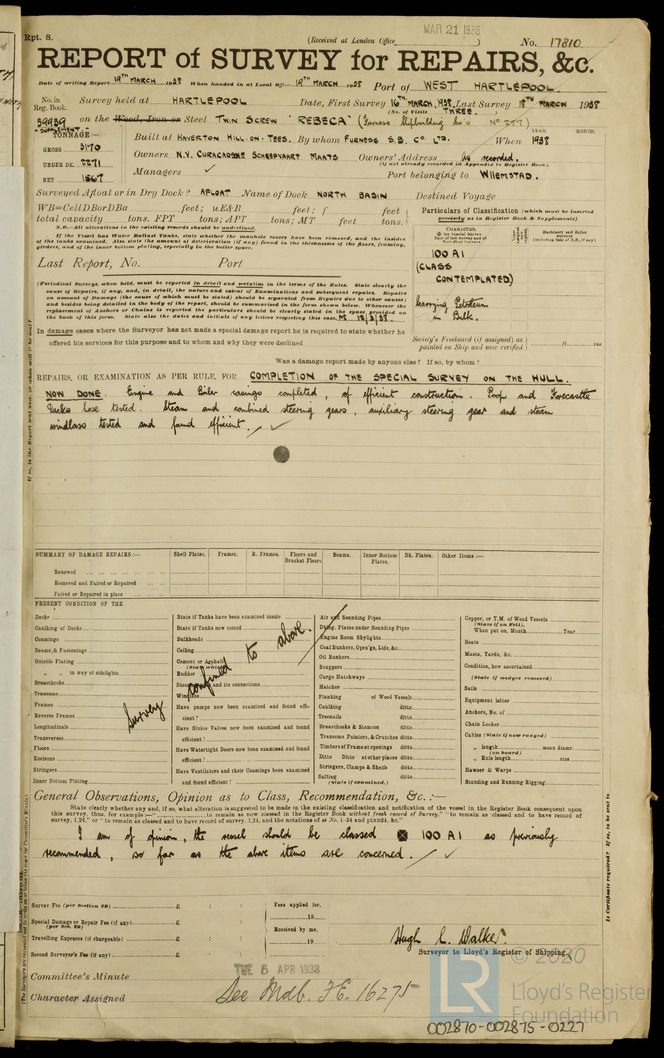 Rpt. 8.
(Received at London Office
)
MAR 21 1938
No. 17810
REPORT of SURVEY for REPAIRS, &c.
Date of writing Report 19TH MARCH 1938 When handed in at Local Office 19TH MARCH 1938 Port of WEST HARTLEPOOL.
No. in Reg. Book. Survey held at HARTLEPOOL Date, First Survey 16TH MARCH, 938. Last Survey 18TH MARCH 1938
(No. of Visits THREE. )
39939 on the Wood, Iron or Steel TWIN SCREW "REBECA" (Furness Shipbuilding Co's No 277)
"SUPPLEMENT"
TONNAGE—
GROSS 3170
UNDER DK. 2271
NET 1567
Built at HAVERTON HILL-ON-TEES. By whom FURNESS S.B. CO. LTD. When 1938
YEAR. MONTH.
Owners N.V. CURACAOSCHE SCHEEPVAART MAATS Owners' Address as recorded.
(if not already recorded in Appendix to Register Book).
Managers ✓ Port belonging to WILLEMSTAD.
Surveyed Afloat or in Dry Dock? AFLOAT Name of Dock NORTH BASIN Destined Voyage
WB=CellDBorDBa feet; uE&B feet; f feet
total capacity tons. FPT tons; APT tons; MT feet tons.
N.B.—All alterations in the existing records should be underlined.
If the Vessel has Water Ballast Tanks, state whether the manhole covers have been removed, and the insides
of the tanks examined. Also state the amount of deterioration (if any) found in the thicknesses of the floors, framing,
girders, and of the inner bottom plating, especially in the boiler space.
Last Report, No. Port
Particulars of Classification (which must be inserted
precisely as in Register Book & Supplements)
CHARACTER.
Machinery and Boiler Surveys
(including date of N.B., if any)
100 A1
(CLASS
CONTEMPLATED)
Carrying Petroleum
in Bulk.
(Periodical Surveys, when held, must be reported in detail and seriatim in the terms of the Rules. State clearly the
cause of Repairs, if any, and, in detail, the nature and extent of Examinations and subsequent repairs. Repairs
on account of Damage (the cause of which must be stated) should be separated from Repairs due to other causes;
and besides being detailed in the body of the report, should be summarized in the form shown below. Whenever the
replacement of Anchors or Chains is reported the particulars should be clearly stated in the space provided on
the back of this form. State also the dates and initials of any letters respecting this case. M 18/3/38.
In damage cases where the Surveyor has not made a special damage report he is required to state whether he
offered his services for this purpose and to whom and why they were declined
Society's Freeboard (if assigned) as
painted on Ship and now verified ft. ins.
Was a damage report made by anyone else? If so, by whom?
REPAIRS, OR EXAMINATION AS PER RULE, FOR COMPLETION OF THE SPECIAL SURVEY ON THE HULL.
NOW DONE. Engine and Boiler casings completed, of efficient construction. Poop and Forecastle
Decks hose tested. Steam and combined steering gears, auxiliary steering gear and steam
windlass tested and found efficient. ✓
SUMMARY OF DAMAGE REPAIRS:— Shell Plates. Frames. R. Frames. Floors and Bracket Floors Beams. Inner Bottom Plates. Dk. Plates. Other Items:—
Renewed
Removed and Faired or Repaired
Faired or Repaired in place
PRESENT CONDITION OF THE
Decks
Caulking of Decks
Coamings
Beams, & Fastenings
Outside Plating
„ „ in way of sidelights
Breasthooks
Transoms
Frames
Reverse Frames
Longitudinals
Transverses
Floors
Keelsons
Stringers
Inner Bottom Plating
State if Tanks have been examined inside
State if Tanks now tested
Bulkheads
Ceiling
Cement or Asphalt
Rudder
and its connections
Windlass
Have pumps now been examined and found efficient?
Have Sluice Valves now been examined and found efficient?
Have Watertight Doors now been examined and found efficient?
Have Ventilators and their Coamings been examined and found efficient?
Survey confined to above.
Air and Sounding Pipes
Dblng. Plates under Sounding Pipes
Engine Room Skylights
Coal Bunkers, Open'gs, Lids, &c.
Oil Bunkers
Scuppers
Cargo Hatchways
Hatches
Planking of Wood Vessels
Caulking ditto
Treenails ditto
Breasthooks & Stemson ditto
Transoms Pointers, & Crutches ditto
Timbers of Frame at openings ditto
Ditto Ditto at other places ditto
Stringers, Clamps & Shelfs ditto
Salting ditto
(State if examined.)
Copper, or Y.M. of Wood Vessels
(State if on Felt).
When put on, Month Year
Boats
Masts, Yards, &c.
Condition, how ascertained
(State if wedges removed)
Sails
Equipment letter
Anchors, No. of
Chain Locker
Cables (State if now ranged)
„ length mean diamr.
(on board)
„ Rule length size
Hawser & Warps
Standing and Running Rigging
General Observations, Opinion as to Class, Recommendation, &c. :—
State clearly whether any and, if so, what alteration is suggested to be made in the existing classification and notification of the vessel in the Register Book consequent upon
this survey, thus, for example:—" to remain as now classed in the Register Book without fresh record of Survey," "to remain as classed and to have record of
survey, 1,24," or "to remain as classed and to have record of survey, 1,24, and the notations of ss No. 1-24 and ptnd24, &c."
I am of opinion, the vessel should be classed 100 A1 as previously
recommended, so far as the above items are concerned. ✓
Survey Fee (per Section 29) £ : :
Special Damage or Repair Fee (if any) £ : :
(per Sec. 29)
Travelling Expenses (if chargeable) £ : :
Second Surveyor's Fee (if any) £ : :
Fees applied for,
19
Received by me,
19
Hugh C. Walker
Surveyor to Lloyd's Register of Shipping.
Committee's Minute TUE 5 APR 1938
Character Assigned See Mdb. F.E. 16275
© 2020
LR
Lloyd's Register
Foundation
002870-002875-0227